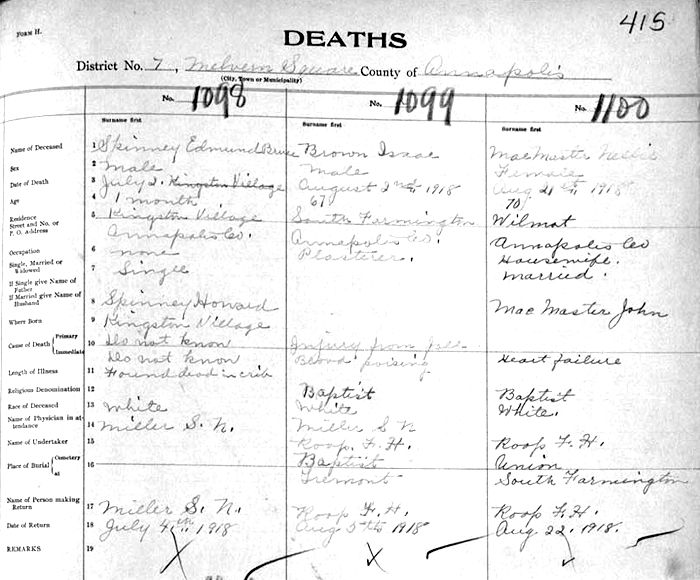 FORM H.
415
DEATHS
District No. 7, Melvern Square County of Annapolis
(City, Town or Municipality)
No. 1098 No. 1099 No. 1100
Surname first Surname first Surname first
Name of Deceased 1 Skinney Edmund Bruce Brown Isaac MacMaster Nellie
Sex 2 Male Male Female
Date of Death 3 July 2. Kingston Village August 2nd 1918 Aug 21st, 1918
Age 4 1 month 67 70
Residence Street and No. or P. O. address 5 Kingston Village South Farmington Wilmot
Annapolis Co. Annapolis Co. Annapolis Co
Occupation 6 none Plasterer. Housewife.
Single, Married or Widowed 7 Single married.
If Single give Name of Father
If Married give Name of Husband 8 Spinney Howard Mac Master John
Where Born 9 Kingston Village
Cause of Death { Primary 10 Do not know Injury from fall
Immediate Do not know Blood poising Heart failure
Length of Illness 11 Found dead in crib
Religious Denomination 12 Baptist Baptist
Race of Deceased 13 White White White.
Name of Physician in attendance 14 Miller S. N. Miller S N
Name of Undertaker 15 Roop. F. H. Roop F. H.
Place of Burial { Cemetery 16 Baptist Union
at Tremont South Farmington
Name of Person making Return 17 Miller S. N. Roop F. H. Roop F.H.
Date of Return 18 July 4th 1918 Aug 5th 1918 Aug 22, 1918.
REMARKS 19